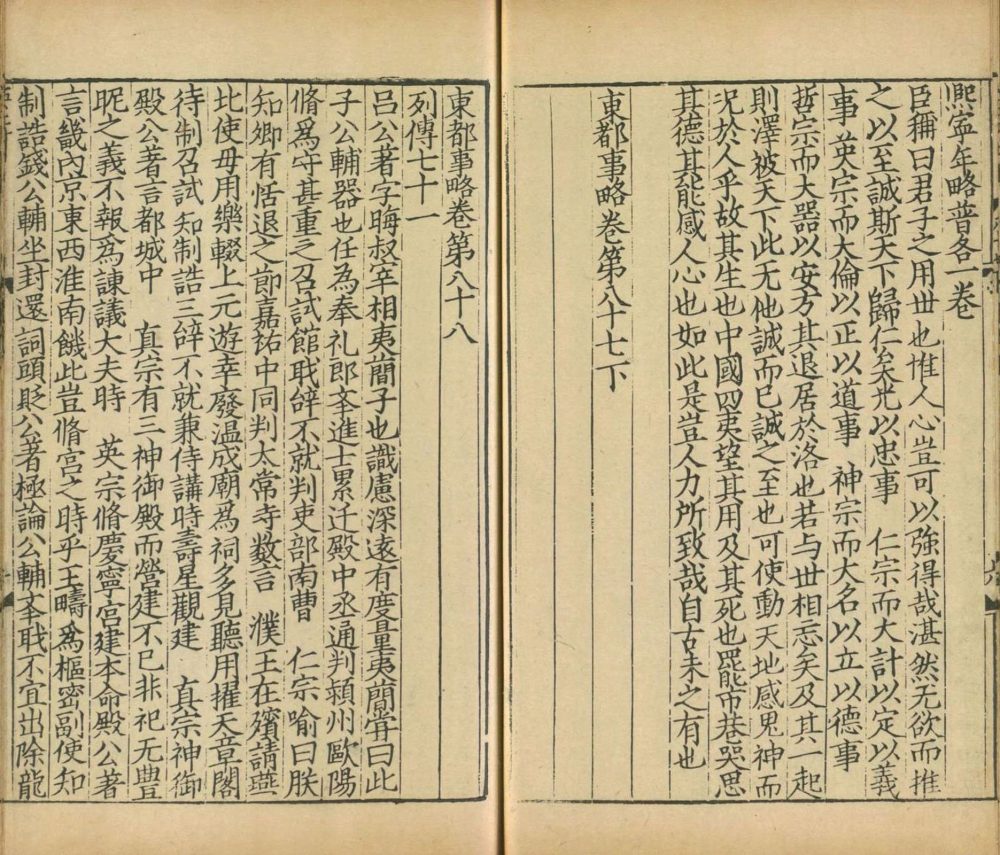 熈寕年略普各一卷
臣稱曰君子之用丗也推人心豈可以強得哉湛然无欲而推
之以至誠斯天下歸仁矣光以忠事　仁宗而大計以定以義
事　英宗而大倫以正以道事　神宗而大名以立以德事
哲宗而大器以安方其退居於洛也若与丗相忘矣及其一起
則澤被天下此无他誠而已誠之至也可使動天地感鬼神而
況於人乎故其生也中國四夷望其用及其死也罷市巷哭思
其德其能感人心也如此是豈人力所致哉自古未之有也
東都事略卷第八十七下
東都事略卷第八十八
列傳七十一
呂公著字晦叔宰相夷簡子也識慮深遠有度量夷簡甞曰此
子公輔器也任為奉礼郎㪯進士累迁殿中丞通判潁州歐陽
脩爲守甚重之召試館職辝不就判吏部南曹　仁宗喻曰朕
知卿有恬退之節嘉祐中同判太常寺數言　濮王在殯請燕
比使毋用樂輟上元遊幸廢温成廟爲祠多見聽用擢天章閣
待制召試知制誥三辝不就兼侍講時壽星觀建　真宗神御
殿公著言都城中　真宗有三神御殿而營建不已非祀无豊
昵之義不報爲諌議大夫時　英宗脩慶寧宮建本命殿公著
言畿內京東西淮南饑此豈脩宮之時乎王疇爲樞密副使知
制誥錢公輔坐封還詞頭貶公著極論公輔㪯職不宜出除龍